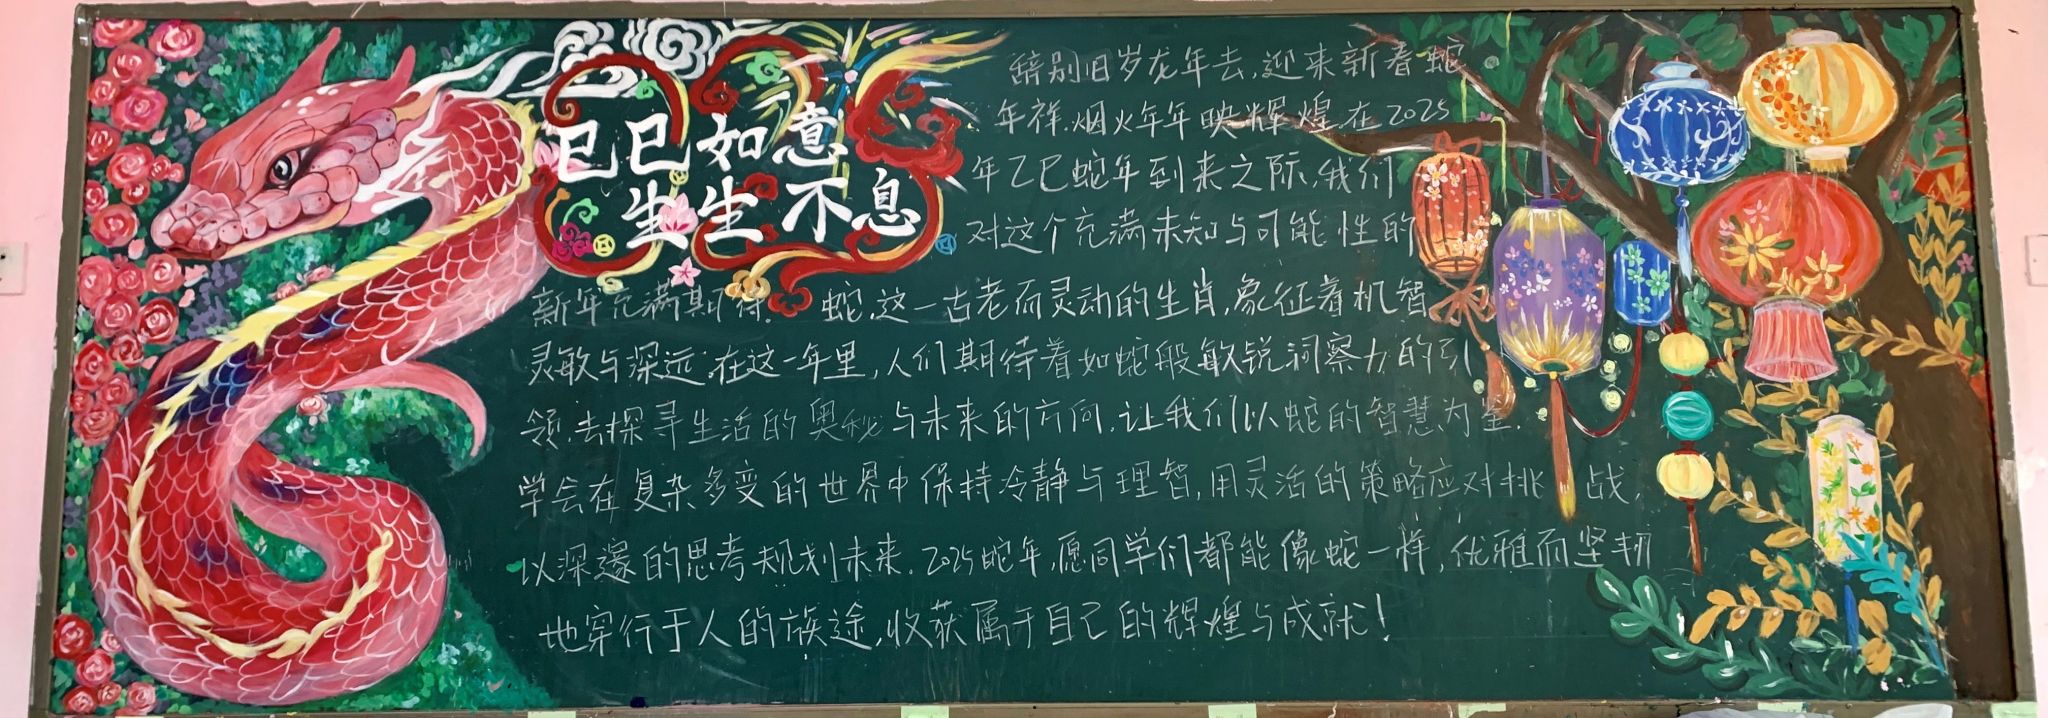 巳巳如意
生生不息
辞别旧岁龙年去,迎来新春蛇
年祥.烟火年年映辉煌.在2025
年乙巳蛇年到来之际,我们
对这个充满未知与可能性的
新年充满期待. 蛇,这一古老而灵动的生肖,象征着机智
灵敏与深远.在这一年里,人们期待着如蛇般敏锐洞察力的引
领,去探寻生活的奥秘与未来的方向.让我们以蛇的智慧为鉴.
学会在复杂多变的世界中保持冷静与理智,用灵活的策略应对挑战,
以深邃的思考规划未来.2025蛇年,愿同学们都能像蛇一样,优雅而坚韧
地穿行于人的旅途,收获属于自己的辉煌与成就!